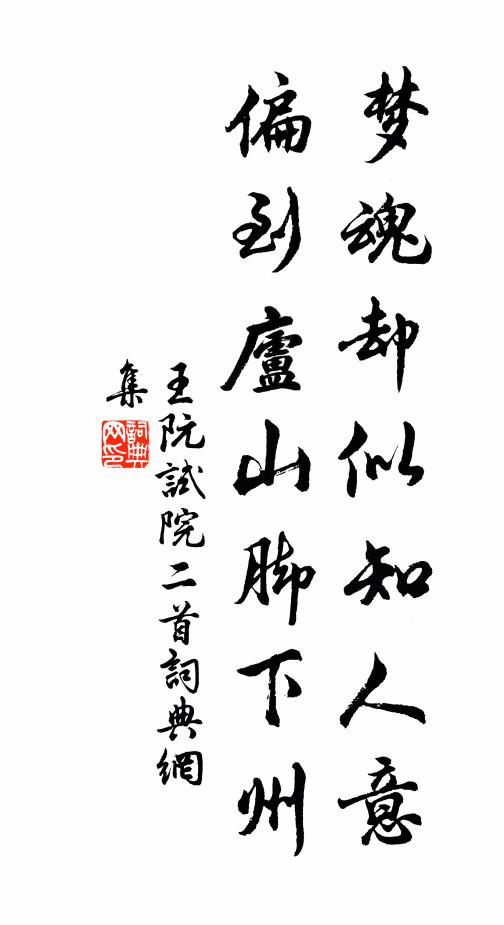 梦魂却似知人意
偏到廬山脚下州
王阮試院二首詞典網
集
詞典
网印